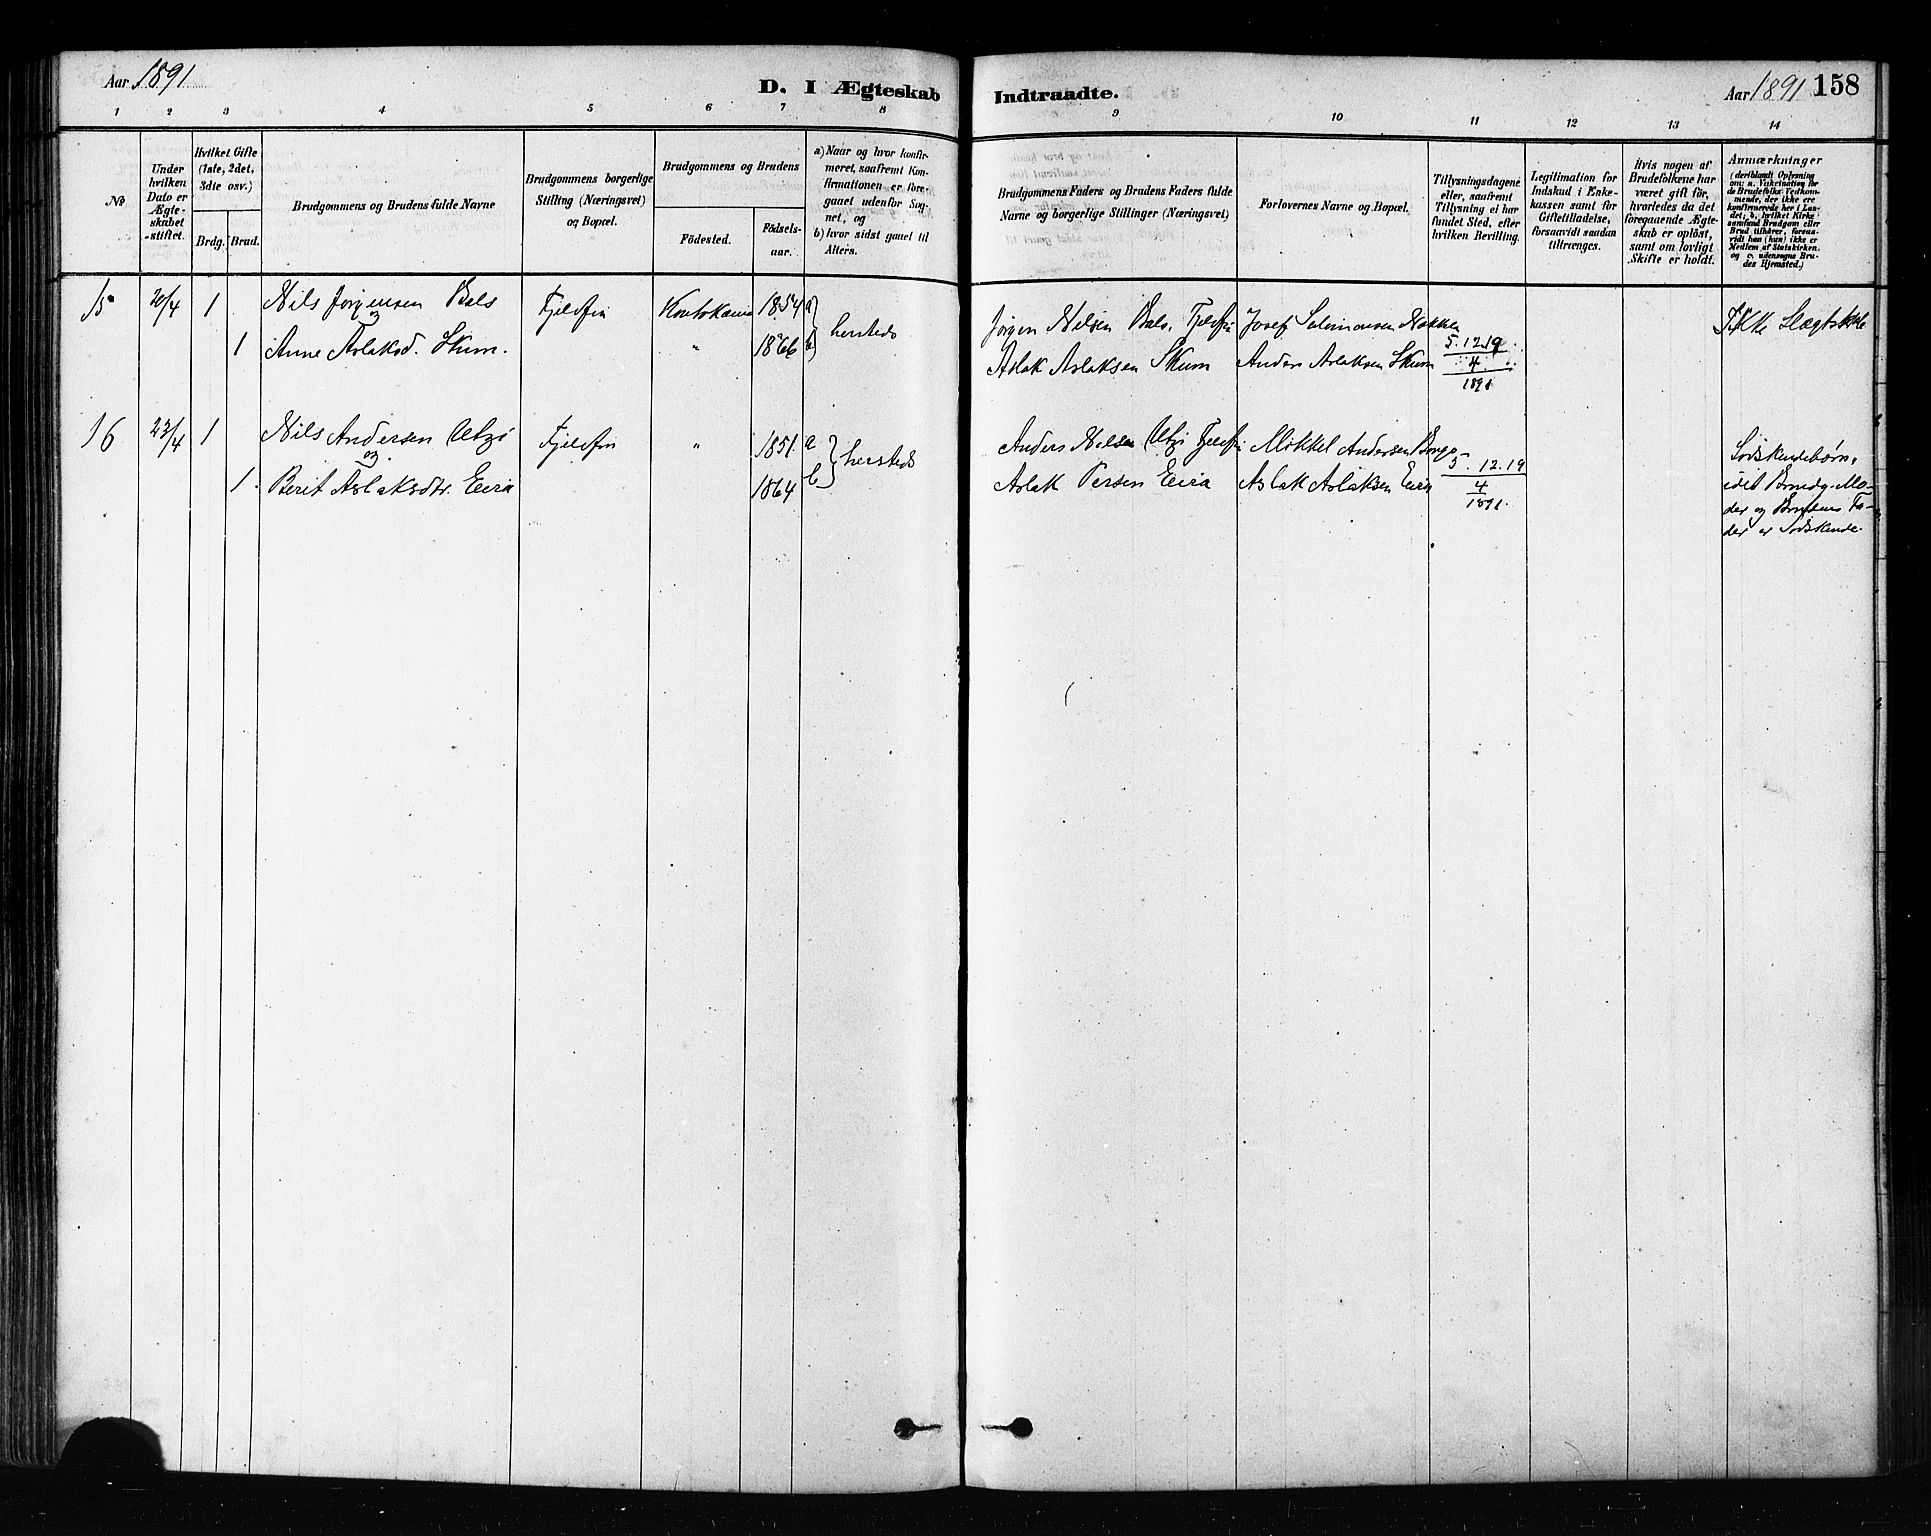 Aar 1891
D. I Ægteskab
Indtraadte.
Aar 1891
158
1 2 3 4 5 6 7 8 9 10 11 12 13 14
No
Under hvilken Dato er Ægteskabet stiftet.
Hvilket Gifte (1ste, 2det, 3die osv.)
Brdg. Brud.
Brudgommens og Brudens fulde Navne
Brudgommens borgerlige Stilling (Næringsvei) og Bopæl.
Brudgommens og Brudens
Födested.
Födsels-aar.
a) Naar og hvor konfirmeret, saafremt Konfirmationen er foregaaet udenfor Sognet, og
b) hvor sidst gaaet til Alters.
Brudgommens Faders og Brudens Faders fulde Navne og borgerlige Stillinger (Næringsvei)
Forlovernes Navne og Bopæl.
Tillysningsdagene eller, saafremt Tillysning ei har fundet Sted, efter hvilken Bevilling.
Legitimation for Indskud i Enkekassen samt for Giftetilladelse, forsaavidt saadan tiltrænges.
Hvis nogen af Brudefolkene har været gift för, hvorledes da det foregaaende Ægteskab er oplöst, samt om lovligt Skifte er holdt.
Anmærkninger (deriblandt Oplysning om: a. Vakcination for de Brudefolks Vedkommende, der ikke ere konfirmerede her i Landet, b. hvilket Kirkesamfund Brudgom eller Brud tilhörer, forsaavidt han (hun) ikke er Medlem af Statskirken, og c. udensogns Brudes Hjemsted.)
15 20/4 1 Nils Jørgensen Bals Fjeldfin Koutokeino 1854 a)
og
1 Anne Aslaksd. Skum. " 1866 b) hersteds
Jørgen Nilsen Bals, Fjeldfin Josef Salomonsen Nakken
Aslak Aslaksen Skum Anders Aslaksen Skum
5. 12. 19
4
1891
Ikke Slægtskab
16 23/4 1 Nils Andersen Utzi Fjeldfin " 1851. a
og
1. Berit Aslaksdtr. Eira 1864 b } hersteds
Anders Nilsen Utzi Fjeldfin Mikkel Andersen Bongo
Aslak Persen Eira Aslak Aslaksen Eira
5. 12. 19
4
1891.
Sødskendebørn,
idet Brudg. Mo-
der og Brudens Fa-
der er Sødskende.